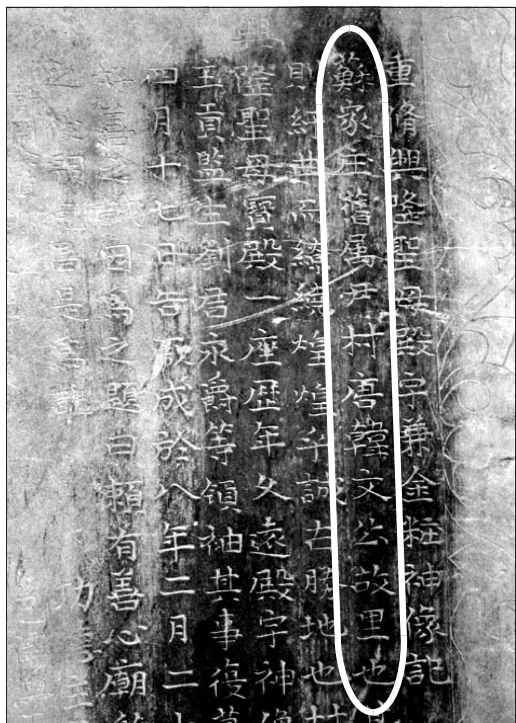 重脩興隆聖母殿宇兼金粧神像記
蘇家庄舊属尹村唐韓文公故里也
繚繞煌煌乎誠古勝地也村
興隆聖母寳殿一座歴年久遠殿宇神像
貢監生劉君永爵等領袖其事復募
四月十七日告厥成於八年二月二十
善之誠因為之題曰頼有善心廟
之後是為誌 功德主